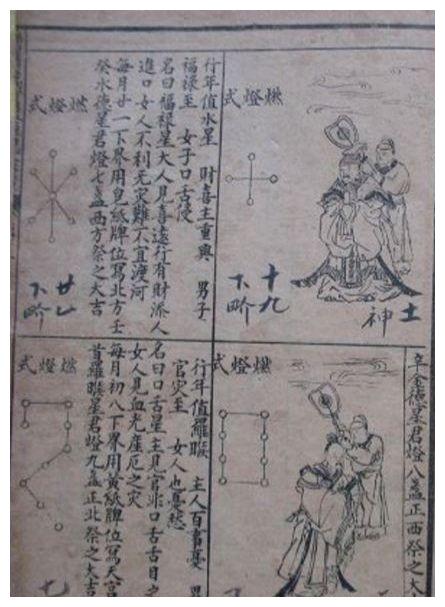 土神
燃燈式
十九
下畍
行年值水星 財喜主重興 男子
福禄至 女子口舌侵
名曰福禄星大人見喜遠行有財添人
進口女人不利无灾難不宜渡河
每月廿一下界用皂紙牌位寫北方壬
癸水德星君燈七盏西方祭之大吉
燃燈式
廿一
下畍
辛金德星君燈八盏正西祭之大
燃燈式
行年值羅睺 主人百事憂 男
官灾至 女人也憂愁
名曰口舌星主見官非口舌目之
女人見血光產厄之灾
每月初八下界用黄紙牌位寫天宫
首羅睺星君燈九盏正北祭之大吉
燃燈式